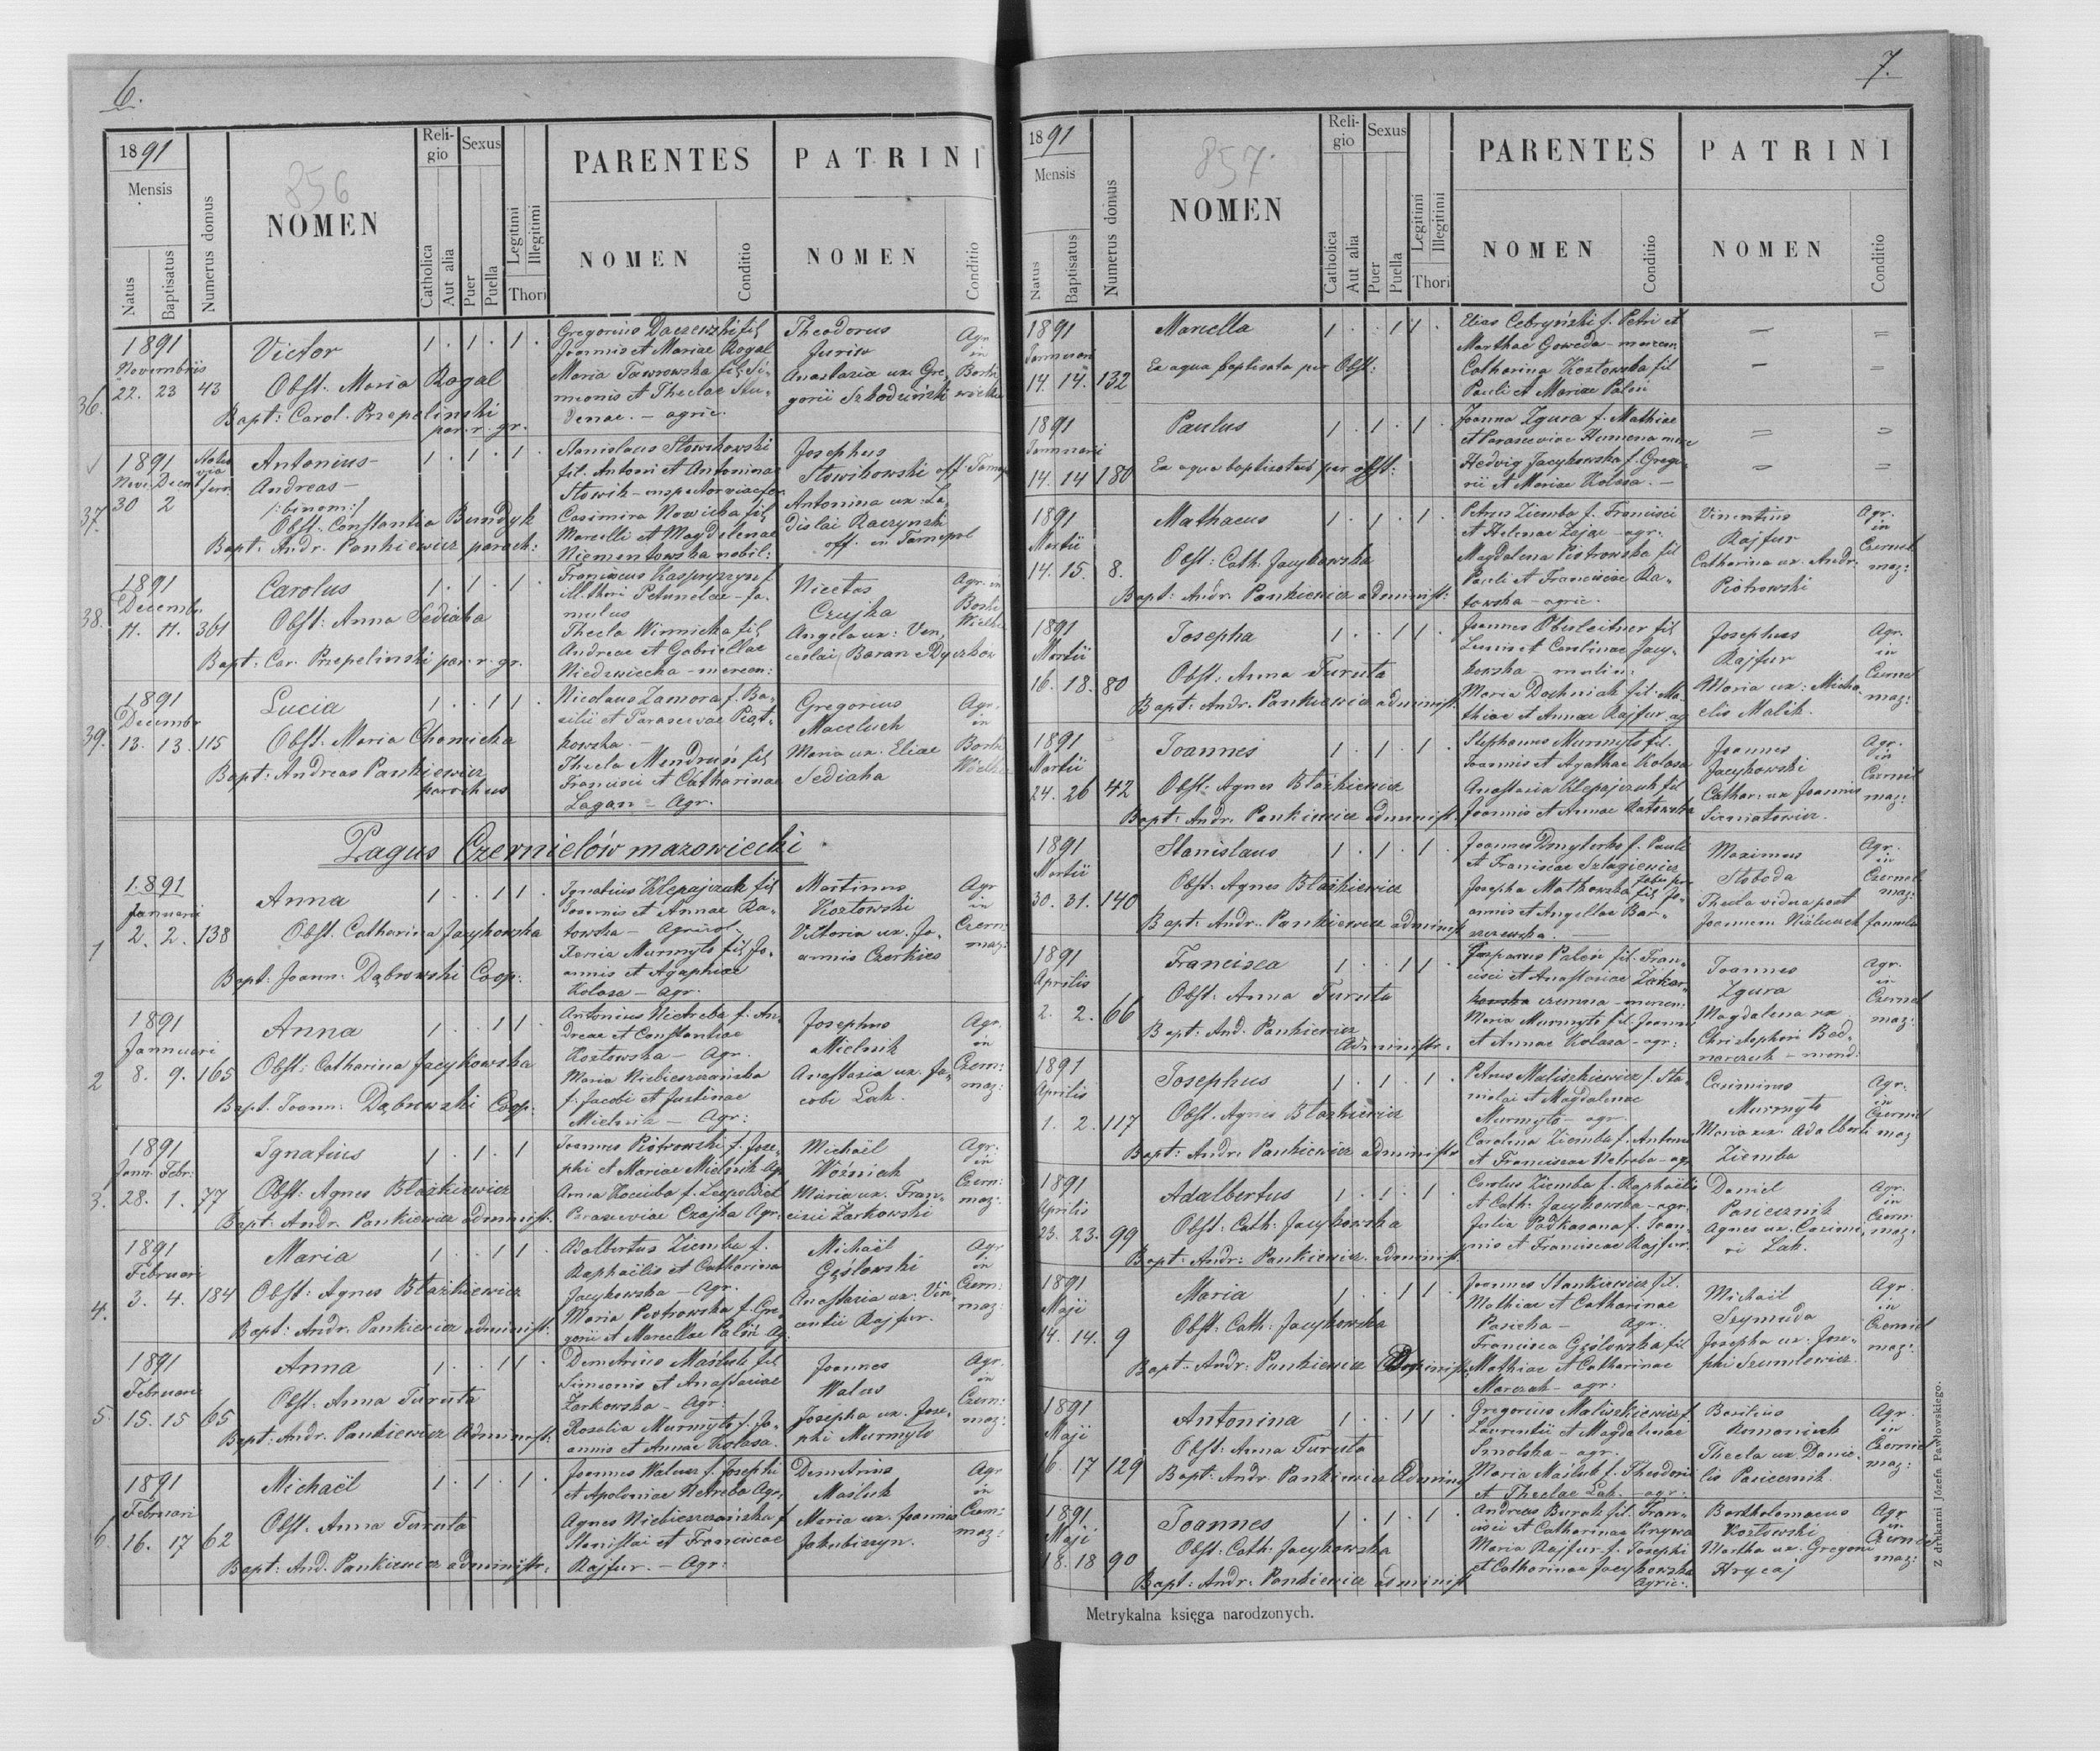 6.
1891
Mensis
Natus
Baptisatus
Numerus domus
856
NOMEN
Religio
Catholica
Aut alia
Sexus
Puer
Puella
Legitimi
Illegitimi
Thori
PARENTES
NOMEN
Conditio
PATRINI
NOMEN
Conditio
36.
1891
Novembris
22. 23 43
Victor
Obst. Maria Rogal
Bapt: Carol. Przepelinski
par. r. gr.
1 . 1 . 1 .
Gregorius Daczewski fil
Joannis et Mariae Rogal
Maria Tawrowska fil. Si-
meonis et Theclae Stu-
denae. — agric.
Theodorus
Juriw
Anastazia ux Gre-
gorii Szkodziński
Agr
in
Borki
wielkie
37.
1891
Nov. Decem
30 2
Antonius-
Andreas-
/:binom:/
Obst. Constantia Bundyk
Bapt: Andr. Pankiewicz paroch:
1 . 1 . 1 .
Stanislaus Słowikowski
fil. Antoni et Antoninae
Słowik - inspector viae fer.
Casimira Nowicka fil
Marcelli et Magdalenae
Niementowska nobil:
Josephus
Słowikowski off. Tarnop
Antonina ux: La-
dislai Raczynski
off. in Tarnopol
38.
1891
Decembr
11. 11. 361
Carolus
Obst: Anna Sediaha
Bapt: Car. Przepelinski par. r. gr.
1 . 1 . 1 .
Franciscus Kasprzyszyn f
illithori Petunelae - fa-
mulus
Thecla Winnicka fil
Andreae et Gabriellae
Niedzwiecka - mercen:
Nicetas
Czujka
Angela ux: Ven-
ceslai Baran
Agr. in
Borki
Wielkie
39.
1891
Decembr
13. 13. 115
Lucia
Obst. Maria Chomicka
Bapt: Andreas Pankiewicz
parochus
1 . . 1 1 .
Nicolaus Zamora f. Ba-
silii et Parascevae Piot-
kowska. -
Thecla Mendruń fil
Francisci et Catharinae
Łagan - Agr.
Gregorius
Maceluch
Maria ux. Eliae
Sediaha
Agr.
in
Borki
Wielkie
Pagus Czernielów mazowiecki
1
1891
Januarii
2. 2. 138
Anna
Obst. Catharina Jacykowska
Bapt: Joann: Dąbrowski Coop:
1 . . 1 1 .
Ignatius Klepajczuk fil
Joannis et Annae Ra-
towska - Agricol.
Xenia Murmyło fil. Jo-
annis et Agaphiae
Kolasa - agr.
Martinus
Kozłowski
Viktoria ux. Jo-
annis Czerkies
Agr
in
Czern:
maz:
2
1891
Januari
8. 9. 165
Anna
Obst: Catharina Jacykowska
Bapt. Joann: Dąbrowski Coop:
1 . . 1 1 .
Antonius Nietreba f. An-
dreae et Constantiae
Kozłowska - Agr.
Maria Niebieszczańska
f. Jacobi et Justinae
Mielnik - Agr:
Josephus
Mielnik
Anastazia ux. Ja-
cobi Łak.
Agr.
in
Czern:
maz:
3.
1891
Jann. Febr:
28. 1. 77
Ignatius
Obst: Agnes Błażkiewicz
Bapt: Andr. Pankiewicz administ.
1 . 1 . 1
Joannes Piotrowski f. Jose-
phi et Mariae Mielnik Agr
Anna Kociuba f. Leopoldi et
Parasceviae Czajka Agr.
Michaël
Woźniak
Maria ux. Fran-
cisci Żarkowski
Agr.
in
Czern:
maz:
4.
1891
Februari
3. 4. 184
Maria
Obst: Agnes Błażkiewicz
Bapt: Andr. Pankiewicz administ:
1 . . 1 1 .
Adalbertus Ziemba f.
Raphaëlis et Catharina
Jacykowska - Agr.
Maria Piotrowska f. Gre-
gorii et Marcellae Paluń Ag:
Michaël
Gęślowski
Anastazia ux: Vin-
centii Rajfur.
Agr
in
Czern:
maz:
5.
1891
Februari
15. 15 65
Anna
Obst: Anna Turuta
Bapt: Andr. Pankiewicz Administ:
1 . . 1 1 .
Demetrius Maśluk fil
Simeonis et Anastasiae
Żarkowska - Agr.
Rosalia Murmyło f. Jo-
annis et Annae Kolasa.
Joannes
Walus
Josepha ux. Jose-
phi Murmyło
Agr.
in
Czern:
maz:
6.
1891
Februari
16. 17 62
Michaël
Obst. Anna Turuta
Bapt: And. Pankiewicz administr:
1 . 1 . 1 .
Joannes Walus f. Josephi
et Apoloniae Netreba Agr.
Agnes Niebieszczańska f
Stanislai et Franciscae
Rajfur. - Agr:
Demetrius
Maśluk
Maria ux. Joannis
Jakubiszyn.
Agr
in
Czern:
maz:
7.
1891
Mensis
Natus
Baptisatus
Numerus domus
857.
NOMEN
Religio
Catholica
Aut alia
Sexus
Puer
Puella
Legitimi
Illegitimi
Thori
PARENTES
NOMEN
Conditio
PATRINI
NOMEN
Conditio
1891
Januari
14. 14. 132
Marcella
Ex aqua baptisata per Obst:
1 . . 1 1 .
Elias Cebryński f. Petri et
Marthae Goweda - mercen
Catharina Kozłowska fil
Pauli et Mariae Paluń
1891
Januari
14. 14 180
Paulus
Ex aqua baptisatus per Obst:
1 . 1 . 1 .
Joannes Zgura f. Mathiae
et Parasceviae Humena merc
Hedvig Jacykowska f. Grego-
rii et Mariae Kolasa. -
1891
Martii
14. 15. 8.
Mathaeus
Obst: Cath. Jacykowska
Bapt: Andr. Pankiewicz administ:
1 . 1 . 1 .
Petrus Ziemba f. Francisci
et Helenae Zajac - agr.
Magdalena Piotrowska fil
Pauli et Franciscae Ra-
towska - agric.
Vincentius
Rajfur
Catharina ux. Andr.
Piotrowski
Agr.
in
Czerniel
maz:
1891
Martii
16. 18. 80
Josepha
Obst: Anna Turuta
Bapt: Andr. Pankiewicz administ.
1 . . 1 1 .
Joannes Obesleitner fil
et Carolinae Jacy-
kowska - molin:
Maria Dachniak fil. Ma-
thiae et Annae Rajfur ag
Josephus
Rajfur
Maria ux: Micha-
elis Malik.
Agr.
in
Czerniel
maz:
1891
Martii
24. 26 42
Joannes
Obst: Agnes Błażkiewicz
Bapt: Andr. Pankiewicz administ.
1 . 1 . 1 .
Stephanus Murmyło fil.
Joannis et Agathae Kolasa
Anastasia Klepajczuk fil
Joannis et Annae Ratowska
Joannes
Jacykowski
Cathar: ux Joannis
Sieniatowicz.
Agr.
in
Czerniel
maz:
1891
Martii
30. 31. 140
Stanislaus
Obst: Agnes Błażkiewicz
Bapt: Andr. Pankiewicz administ
1 . 1 . 1 .
Joannes Dmyterko f. Pauli
et Franciscae Szlagiewicz
Josepha Mathowska fil. Jo-
annis et Angellae Bar-
szczewska.
Maximus
Słoboda
Thecla vidua post
Joannem
Agr.
in
Czerniel
maz:
famula
1891
Aprilis
2. 2. 66
Francisca
Obst: Anna Turuta
Bapt: And. Pankiewicz
Administr.
1 . . 1 1 .
Gasparus Paluń fil. Fran-
cisci et Anastasiae Zakar-
czemna - mercen:
Maria Murmyło fil. Joannis
et Annae Kolasa - agr:
Joannes
Zgura
Magdalena ux
Christophori Bed-
narczuk - mend:
Agr.
in
Czerniel
maz:
1891
Aprilis
1. 2. 117
Josephus
Obst. Agnes Błażkiewicz
Bapt: Andr. Pankiewicz administr
1 . 1 . 1 .
Petrus Maliszkiewicz f. Sta-
nislai et Magdalenae
Murmyło - agr.
Carolina Ziemba f. Antonii
et Franciscae Netreba - agr
Casimirus
Murmyło
Maria ux. Adalberti
Ziemba
Agr.
in
Czerniel
maz
1891
Aprilis
23. 23. 99
Adalbertus
Obst: Cath. Jacykowska
Bapt: Andr: Pankiewicz. administ.
1 . 1 . 1 .
Carolus Ziemba f. Raphaëlis
et Cath: Jacykowska - agr.
Julia Podkasana f. Joan-
nis et Franciscae Rajfur.
Daniel
Pasiecznik
Agnes ux. Casimi-
ri Łak.
Agr.
in
Czern:
maz:
1891
Maji
14. 14. 9
Maria
Obst: Cath: Jacykowska
Bapt: Andr: Pankiewicz Administ:
1 . . 1 1 .
Joannes Stankiewicz fil.
Mathiae et Catharinae
Pasicha - Agr.
Francisca Gęślowska fil
Mathiae et Catharinae
Marczak - agr:
Michael
Seymuda
Josepha ux: Jose-
phi Szumlewicz.
Agr.
in
Czerniel
maz:
1891
Maji
16. 17 129
Antonina
Obst: Anna Turuta
Bapt: Andr. Pankiewicz Administ
1 . . 1 1 .
Gregorius Maliszkiewicz f.
Laurentii et Magdalenae
Smolska - agr.
Maria Maśluk f. Theodori
et Theclae Łak. - agr:
Basilius
Romaniuk
Thecla ux. Danie-
lis Pasiecznik.
Agr.
in
Czerniel
maz:
1891.
Maji
18. 18 90
Joannes
Obst: Cath: Jacykowska
Bapt: Andr: Pankiewicz administ
1 . 1 . 1 .
Andreas Burak fil. Fran-
cisci et Catharinae Krzywa
Maria Rajfur f. Josephi
et Catharinae Jacykowska
Agric:.
Bartholomaeus
Kozłowski
Martha ux. Gregorii
Hrycaj
Agr
in
Czerniel
maz:
Metrykalna księga narodzonych.
Z drukarni Józefa Pawłowskiego.